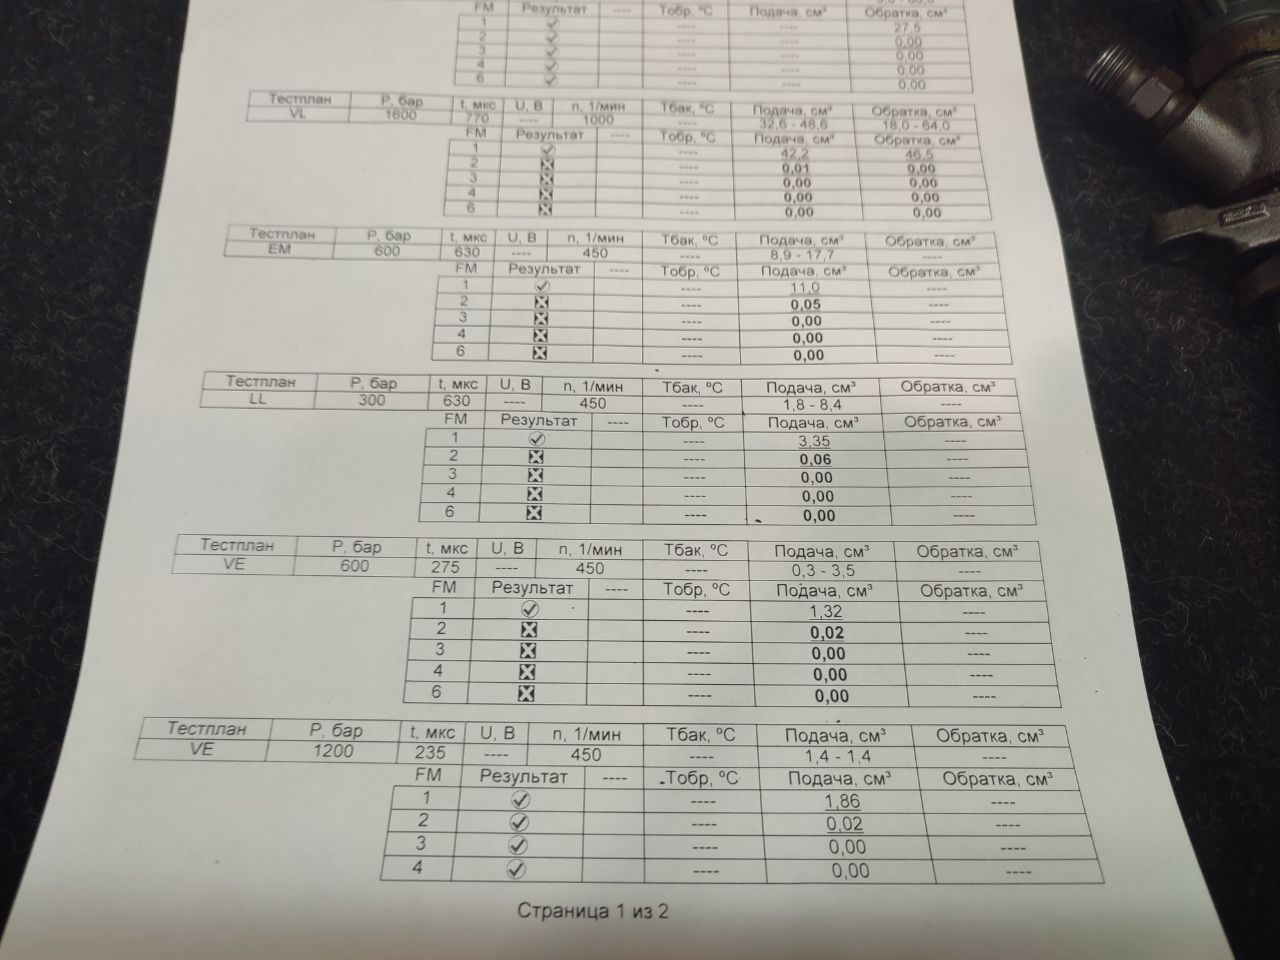 FM Результат ---- Тобр, ºС Подача, см³ Обратка, см³
1 ---- ---- 27,5
2 ---- ---- 0,00
3 ---- ---- 0,00
4 ---- ---- 0,00
6 ---- ---- 0,00
Тестплан P, бар t, мкс U, В n, 1/мин Тбак, ºС Подача, см³ Обратка, см³
VL 1600 770 ---- 1000 ---- 32,6 - 48,6 18,0 - 64,0
FM Результат ---- Тобр, ºС Подача, см³ Обратка, см³
1 ---- 42,2 46,5
2 ---- 0,01 0,00
3 ---- 0,00 0,00
4 ---- 0,00 0,00
6 ---- 0,00 0,00
Тестплан P, бар t, мкс U, В n, 1/мин Тбак, ºС Подача, см³ Обратка, см³
EM 600 630 ---- 450 ---- 8,9 - 17,7 ----
FM Результат ---- Тобр, ºС Подача, см³ Обратка, см³
1 ---- 11,0 ----
2 ---- 0,05 ----
3 ---- 0,00 ----
4 ---- 0,00 ----
6 ---- 0,00 ----
Тестплан P, бар t, мкс U, В n, 1/мин Тбак, ºС Подача, см³ Обратка, см³
LL 300 630 ---- 450 ---- 1,8 - 8,4 ----
FM Результат ---- Тобр, ºС Подача, см³ Обратка, см³
1 ---- 3,35 ----
2 ---- 0,06 ----
3 ---- 0,00 ----
4 ---- 0,00 ----
6 ---- 0,00 ----
Тестплан P, бар t, мкс U, В n, 1/мин Тбак, ºС Подача, см³ Обратка, см³
VE 600 275 ---- 450 ---- 0,3 - 3,5 ----
FM Результат ---- Тобр, ºС Подача, см³ Обратка, см³
1 ---- 1,32 ----
2 ---- 0,02 ----
3 ---- 0,00 ----
4 ---- 0,00 ----
6 ---- 0,00 ----
Тестплан P, бар t, мкс U, В n, 1/мин Тбак, ºС Подача, см³ Обратка, см³
VE 1200 235 ---- 450 ---- 1,4 - 1,4 ----
FM Результат ---- Тобр, ºС Подача, см³ Обратка, см³
1 ---- 1,86 ----
2 ---- 0,02 ----
3 ---- 0,00 ----
4 ---- 0,00 ----
Страница 1 из 2